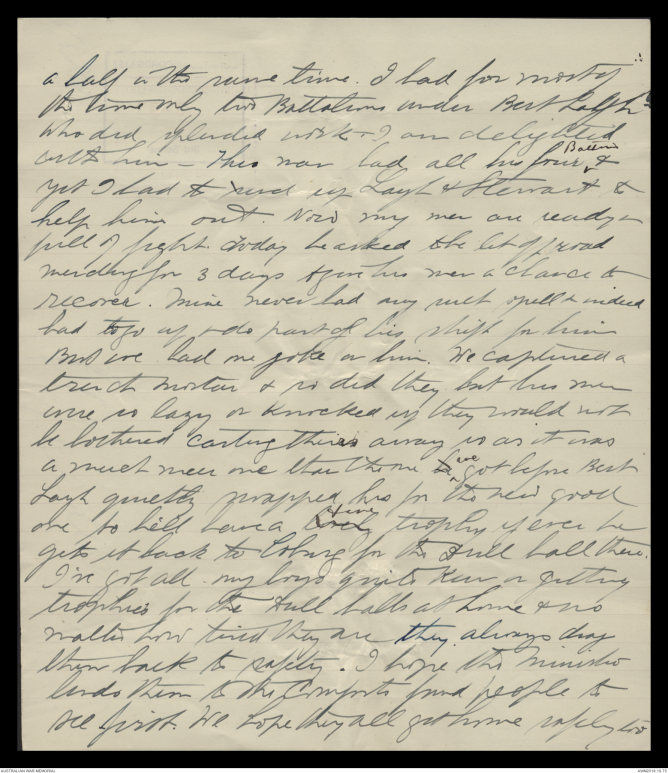 a half in the same time. I had for most of
the time only two Battalions under Bert Layh
who did splendid work & I am delighted
with him – This man had all his four Battns &
yet I had to send up Layh & Stewart to
help him out. Now my men are ready &
full of fight. Today he asked to be let off road
mending for 3 days to give his men a chance to
recover. Mine never had any such spell & indeed
had to go up & do part of his shift for him
But we had one joke on him. We captured a
trench mortar & so did they but his men
were so lazy or knocked up they would not
be bothered carting theirs away so as it was
a much nicer one than the one we got before Bert
Layh quietly swapped his for the new good
one so he'll have a fine trophy if ever he
gets it back to Coburg for the Drill hall there.
I've got all my boys quite keen on getting
trophies for the Drill halls at home & no
matter how tired they are they always drag
them back to safety. I hope the Minister
lends them to the Comforts fund people to
see first. We hope they all get home safely too
AUSTRALIAN WAR MEMORIAL